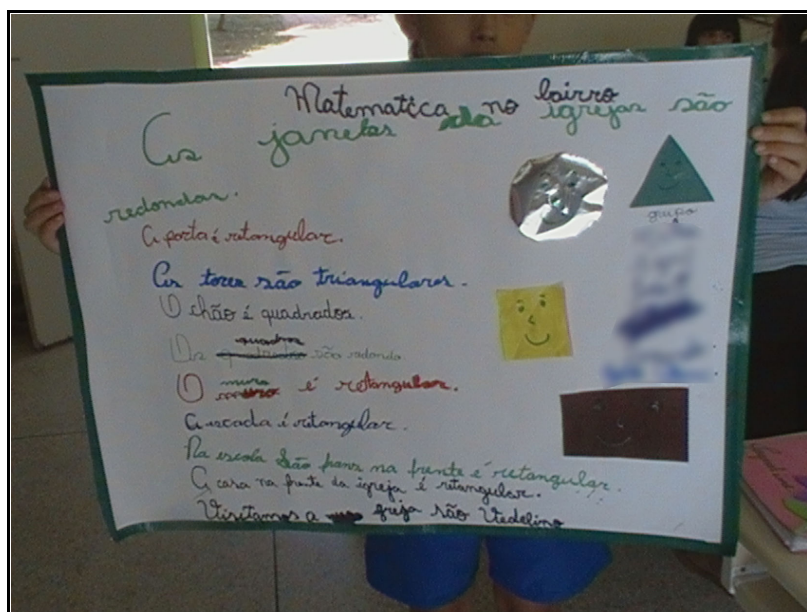 Matematica no bairro
As janelas da igrejas são
redondas.
A porta é retangular.
As tores são triangulares.
O chão é quadrados.
Os quadros são redondo.
O muro é retangular.
A escada é retangular.
Na escola São frans na frente é retangular.
A casa na frente da igreja é retangular.
Visitamos a greja são Vedelino
grupo